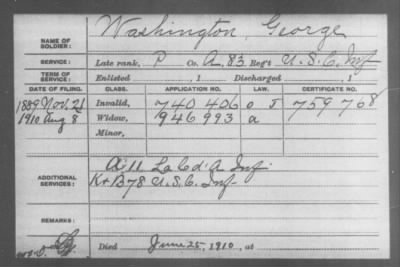 NAME OF SOLDIER: Washington, George
SERVICE: Late rank, P Co. A, 83 Reg't U.S.C. Inf
TERM OF SERVICE: Enlisted , 1 Discharged , 1
DATE OF FILING. CLASS. APPLICATION NO. LAW. CERTIFICATE NO.
1889 Nov. 21 Invalid, 740 406 o J 759 768
1910 Aug 8 Widow, 946 993 a
Minor,
ADDITIONAL SERVICES: A 11 La C d'A Inf.
K + B 78 U.S.C. Inf.
REMARKS:
Died June 25, 1910, at